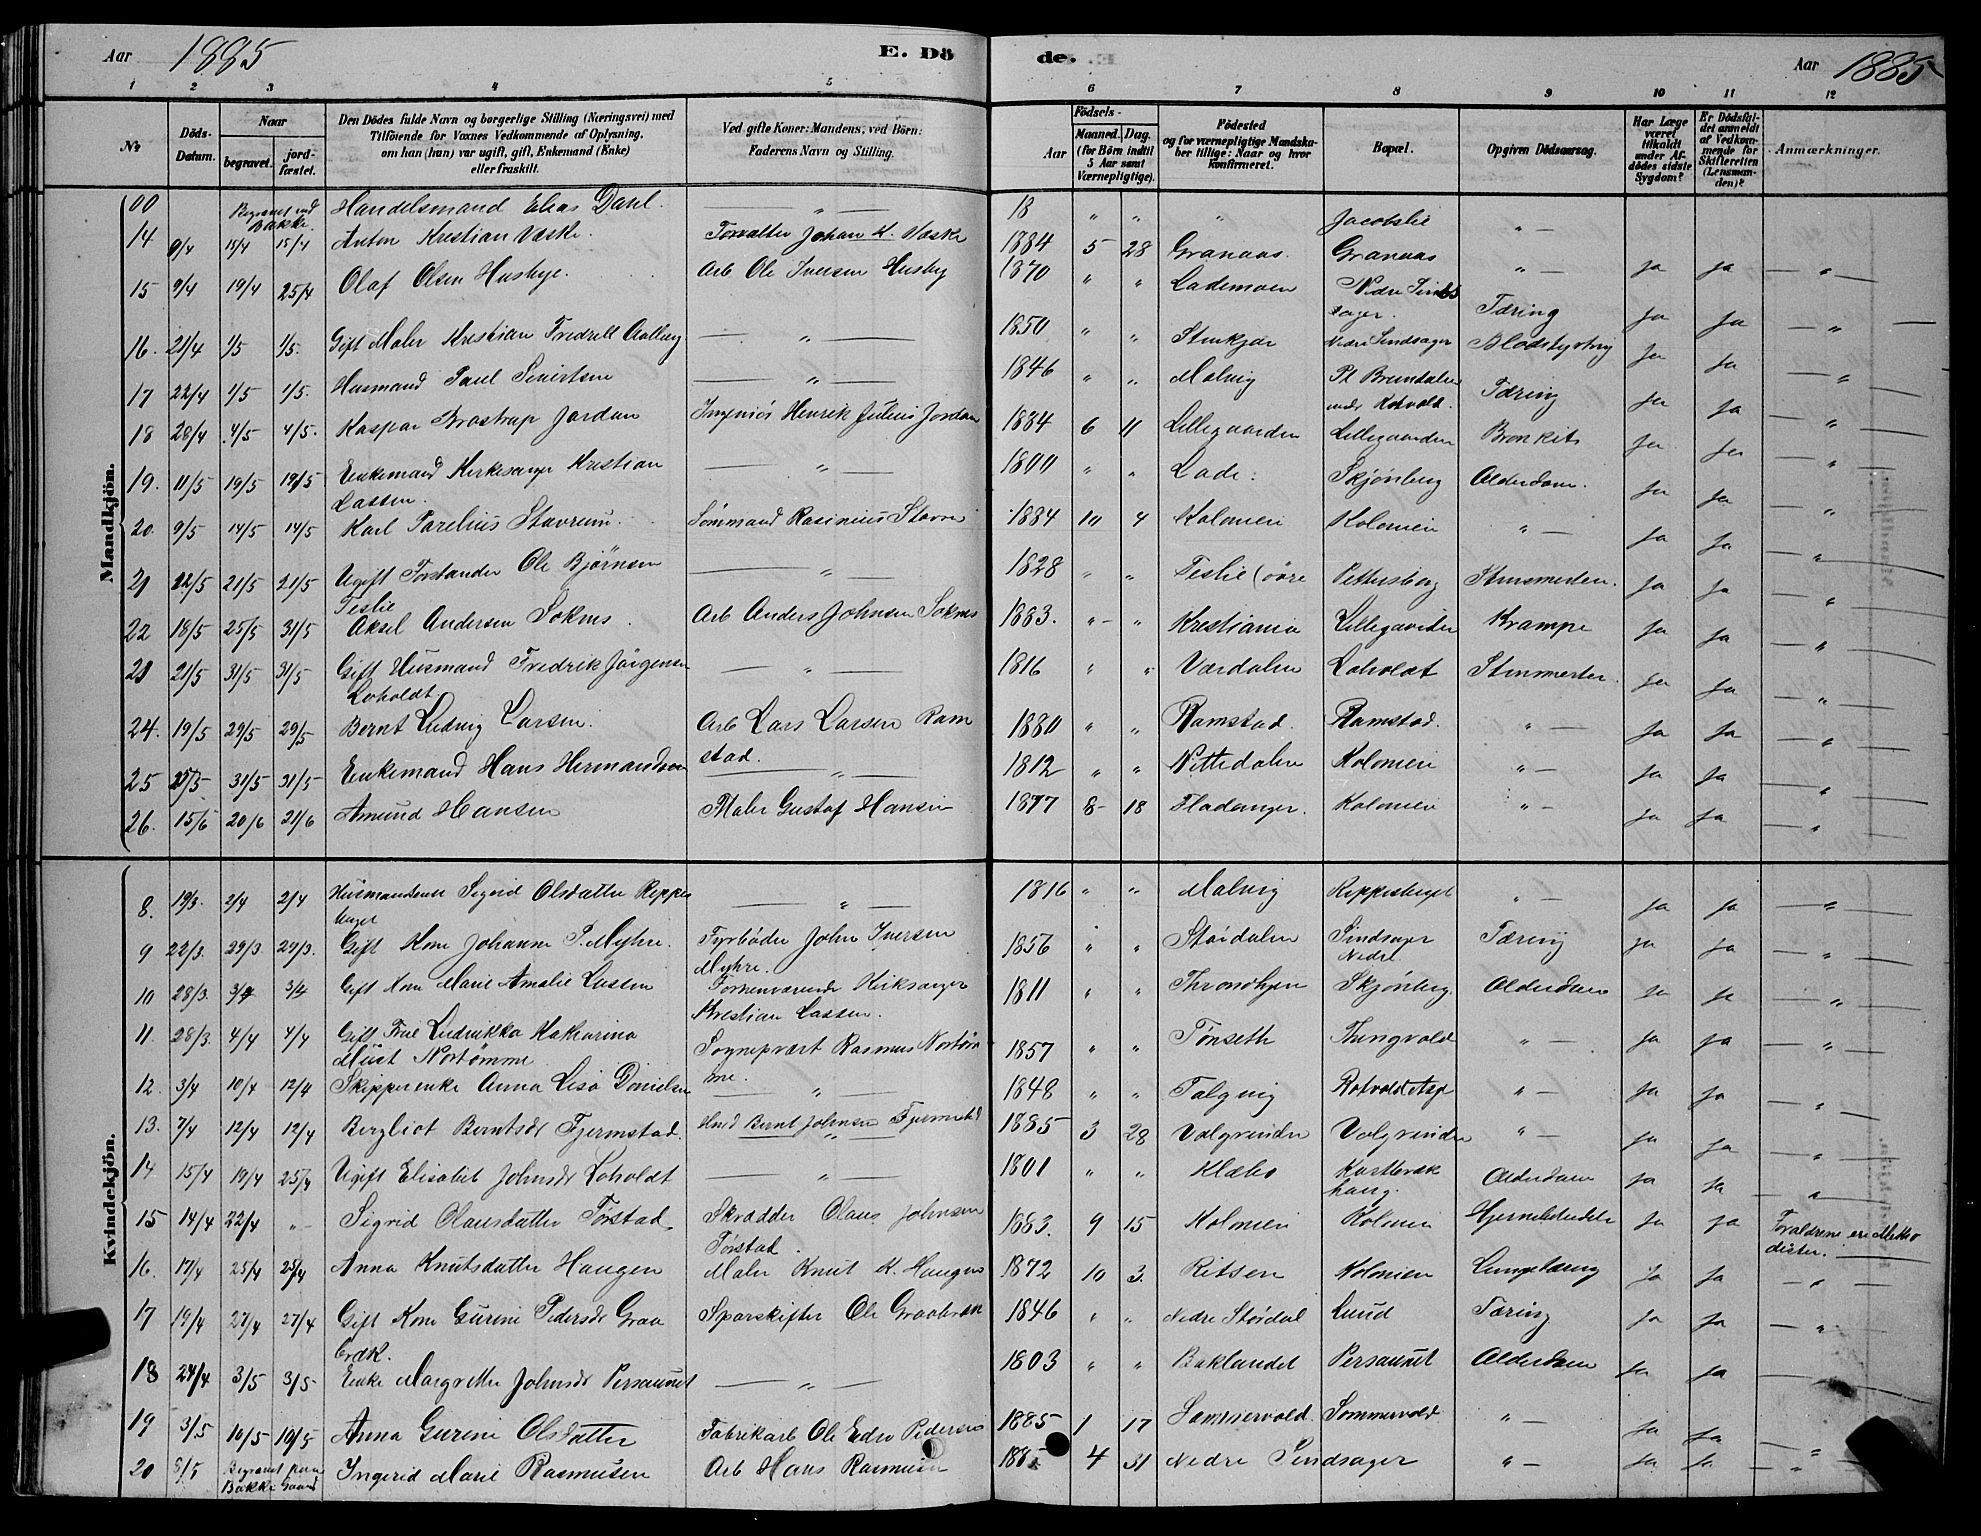 Aar 1885 E. Dö de. Aar 1885
1 2 3 4 5 6 7 8 9 10 11 12
No Döds-Datum. Naar begravet. jordfæstet. Den Dödes fulde Navn og borgerlige Stilling (Næringsvei) med Tilföiende for Voxnes Vedkommende af Oplysning, om han (hun) var ugift, gift, Enkemand (Enke) eller fraskilt. Ved gifte Koner: Mandens, ved Börn: Faderens Navn og Stilling. Födsels- Aar Maaned. Dag. (for Börn indtil 5 Aar samt Værnepligtige). Födested og for værnepligtige Mandskaber tillige: Naar og hvor konfirmeret. Bopæl. Opgiven Dödsaarsag. Har Læge været tilkaldt under Afdödes sidste Sygdom? Er Dödsfaldet anmeldt af Vedkommende for Skifteretten (Lensmanden)? Anmærkninger.
Mandkjön.
00 Begravet ved Bakke. Handelsmand Elias Dahl. — " — 18 " " " Jacobslie " —
14 9/4 15/4 15/4 Anton Kristian Væske. Forvalter Johan K. Væske 1884 5 28 Granaas. Granaas " — Ja Ja — " —
15 9/4 19/4 25/4 Olaf Olsen Husbye. Arb Ole Iversen Husby 1870 " " Lademoen Nedre Sindsager. Tæring Ja Ja — " —
16. 21/4 1/5 1/5. Gift Maler Kristian Fredrik Aalberg — " — 1850 " " Stenkjær Nedre Sindsager Blodstyrtning Ja Ja — " —
17 22/4 1/5 1/5. Husmand Paul Sivertsen — " — 1846 " " Malvig Pl Brundalen under Rotvold. Tæring Ja Ja — " —
18 28/4 4/5 4/5. Kaspar Brostrup Jordan Ingeniör Henrik Julius Jordan 1884 6 11 Lillegaarden Lillegaarden Bronkits Ja Ja — " —
19. 11/5 19/5 19/5 Enkemand Kirkesanger Kristian Lassen. — " — 1800 " " Lade. Skjönberg Alderdom. Ja Ja — " —
20. 9/5 14/5 14/5 Karl Parelius Stavrum. Sømmand Rasinius Stavru 1884 10 4 Kolonien Kolonien " — Ja Ja — " —
21 12/5 21/5 21/5 Ugift Forstander Ole Bjørnsen Teslie — " — 1828 " " Teslie (övre Pettersborg Stensmerter. Ja Ja — " —
22 18/5 25/5 31/5 Aksel Andersen Soknes. Arb Anders Johnsen Soknes 1883. " — " Kristiania Lillegaarden Krampe Ja Ja — " —
23 21/5 31/5 31/5 Gift Husmand Fredrik Jørgensen Loholdt. — " — 1816 " " Værdalen Loholdt Stensmerter. Ja Ja — " —
24. 19/5 29/5 29/5 Bernt Ludvig Larsen. Arb Lars Larsen Ramstad. 1880 " " Ramstad. Ramstad. " — Ja Ja — " —
25 25/5 31/5 31/5 Enkemand Hans Hermandsen — " — 1812 " " Nittedalen Kolonien " — Ja Ja — " —
26. 15/6 20/6 21/6 Amund Hansen Maler Gustaf Hansen 1877 8 — 18 Fladanger. Kolonien " — Ja Ja — " —
Kvindekjön.
8. 19/3. 2/4 2/4 Husmandsenke Sigrid Olsdatter Reppesberget — " — 1816 " " Malvig Reppesberget " — Ja Ja — " —
9 22/3. 29/3 29/3. Gift Kone Johanna P. Myhre. Fyrbøder John Iversen Myhre. 1856 " " Stördalen Sindsager Nedre Tæring Ja Ja — " —
10 28/3. 3/4 3/4 Gift Kone Marie Amalie Lassen Forhenværende Kirksanger Kristian Lassen. 1811 " " Throndhjem Skjönberg. Alderdom Ja Ja — " —
11 28/3. 4/4 4/4 Gift Frue Ludvikka Katharina Müst Nortømme Sognepræst Rasmus Nortømme. 1857 " " Tønseth Tungvold " — Ja Ja — " —
12. 3/4 10/4 12/4 Skipperenke Anna Lisa Danielsen — " — 1848 " " Talgvig Rotvold Asyl " — Ja Ja — " —
13. 7/4 12/4 12/4 Bergliot Berntsdr Fjermstad. Hmd Bernt Johnsen Fjermstad 1885 3 28 Valgrinden Valgrinden " — Ja Ja — " —
14 15/4 19/4 25/4 Ugift Elisabet Johnsdr Loholdt — " — 1801 " " Klæbo Kastbrækhaug. Alderdom Ja Ja — " —
15 14/4 22/4 " — Sigrid Olausdatter Tørstad. Skrædder Olaus Johnsen Tørstad. 1883. 9 15 Kolonien Kolonien Ja Ja Forældrene ere Methodister.
16. 17/4 25/4 25/4 Anna Knutsdatter Haugen Maler Knut K. Haugen 1872 10 3. Ritsen Kolonien Lungetæring Ja Ja — " —
17 19/4 27/4 27/4 Gift Kone Gurine Pedersdr Graabræk. Sparskifter Ole Graabræk 1846 " " Nedre Stördal Luud Tæring Ja Ja — " —
18 24/4 3/5 3/5 Enke Margrethe Johnsdr Persaunet — " — 1803 " " Baklandet Persaunet Alderdom Ja Ja — " —
19 3/5 10/5 10/5 Anna Gurine Olsdatter Fabrikarb Ole Edv Pedersen 1885 1 17 Sommervold Sommervold " — Ja Ja — " —
20 9/5 Begravet paa Bakke Gaard Ingerid Marie Rasmusen Arb Hans Rasmusen 188 4 31 Nedre Sindsager " — Ja Ja — " —